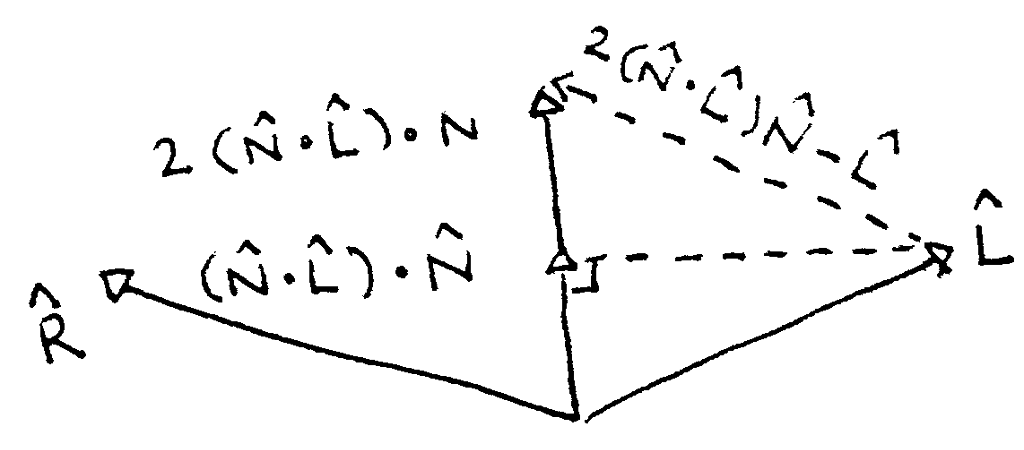 2(N̂·L̂)N̂-L̂
2(N̂·L̂)·N
(N̂·L̂)·N̂
L̂
R̂